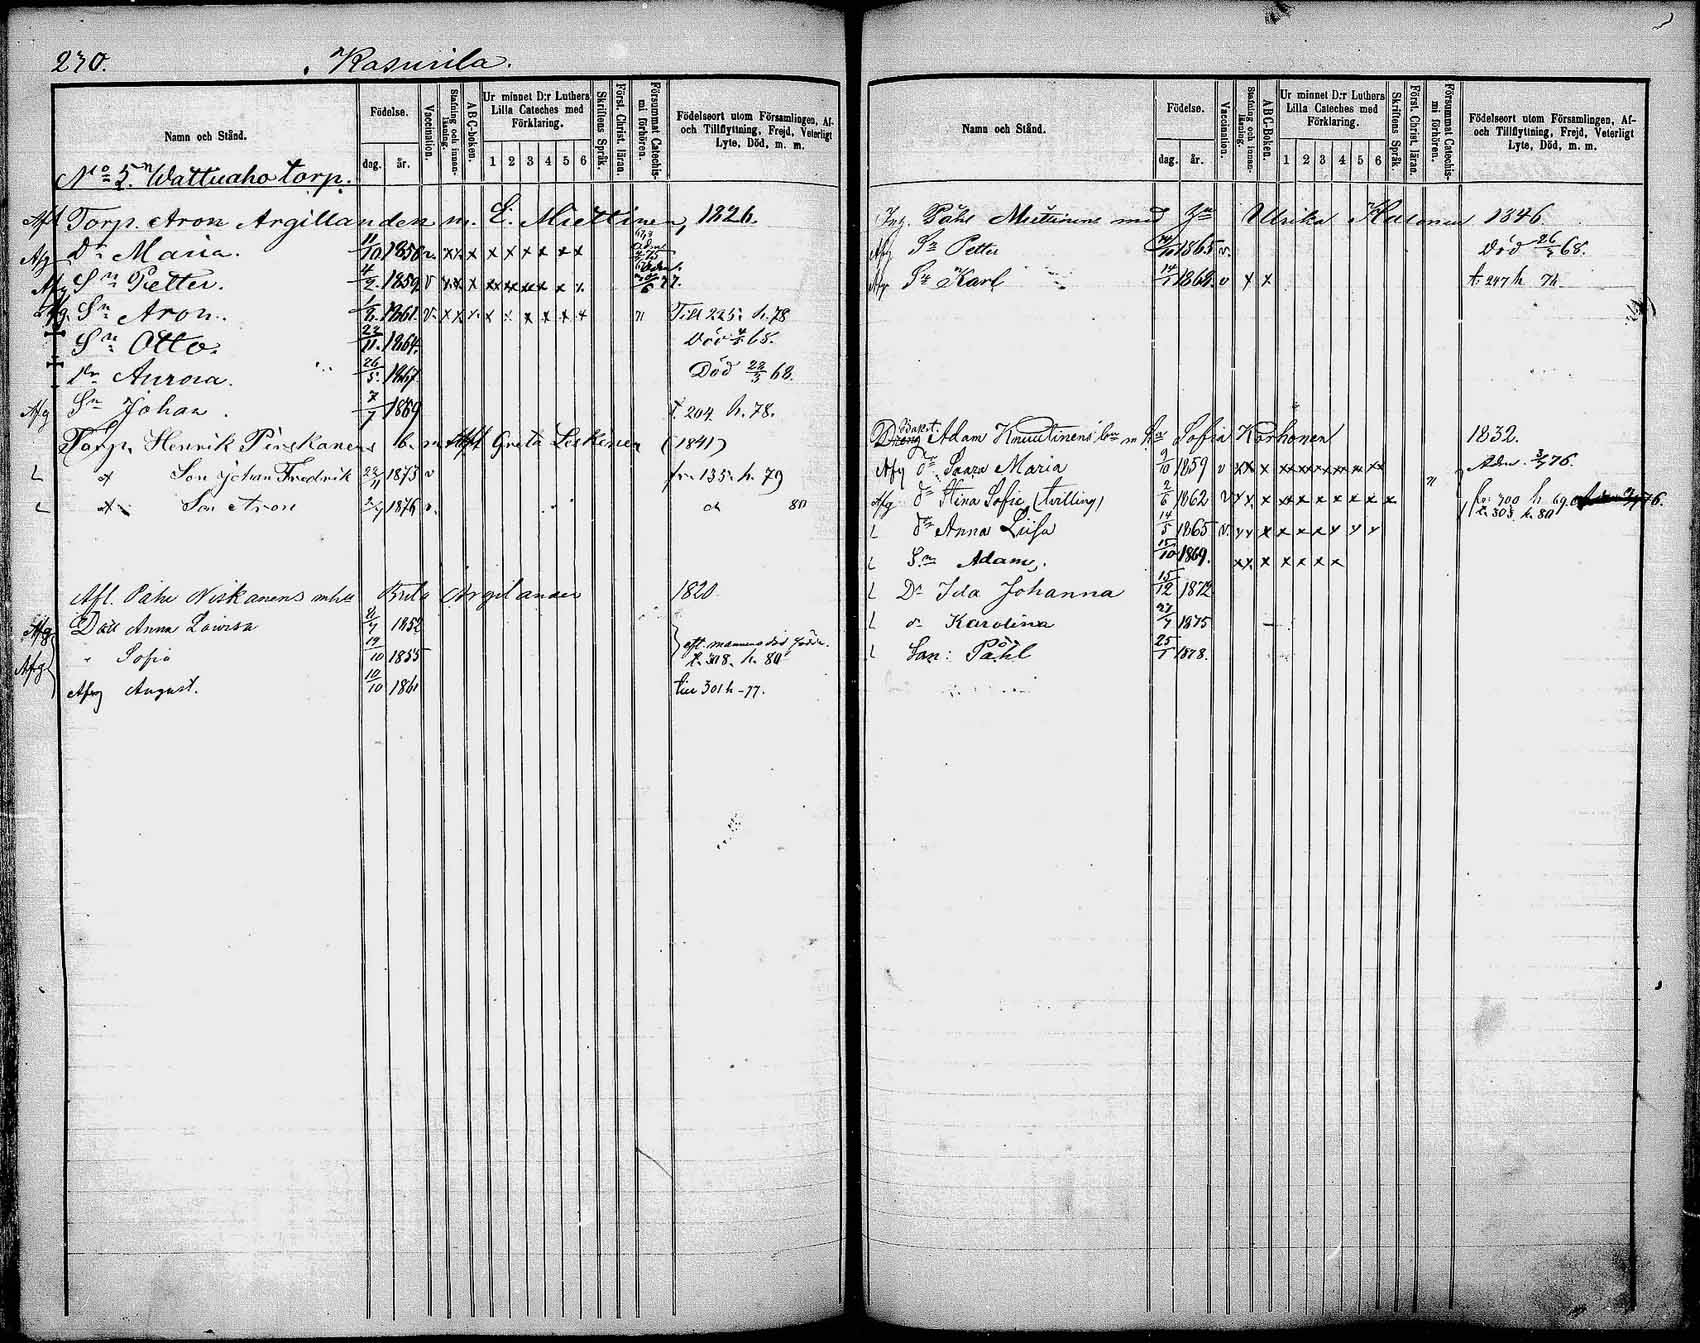 230. Kasurila.
Namn och Stånd.
Födelse.
dag. år.
Vaccination.
Stafning och innanläsning.
ABC-boken.
Ur minnet D:r Luthers Lilla Cateches med Förklaring.
1 2 3 4 5 6
Skriftens Språk.
Först. Christ. läran.
Försummat Catechismi förhören.
Födelseort utom Församlingen, Af- och Tillflyttning, Frejd, Veterligt Lyte, Död, m. m.
No 5. Wattuaho torp.
Afl Torp. Aron Argillander m. E. Miettinen, 1826.
Afg Dr Maria. 11/10 1856 v x x x x x x x x x
Afg Sn Petter. 4/2 1859 v x x x x x x x x x
Afg. Sn Aron. 1861 v x x x x x x x x n Till 225. h. 78
Sn Otto. 23/11 1864. Död 68.
Dr Aurora. 26/5 1867 Död 22/3 68.
Afg Sn Johan. 7/7 1869 t. 204. h. 78.
Torp. Henrik Pirskanen m Greta Leskinen (1841)
Son Johan Fredrik 22/11 1873 v fr. 135. h. 79
Son Aron 1876 v. 80
Afl. Påhl Niskanens Brita Argilander 1820
Afg Dott Anna Lowisa 8/7 1852
Afg " Sofia 19/10 1855 t. 318. h. 80
Afg August. 10/10 1861 till 301 h-77.
Namn och Stånd.
Födelse.
dag. år.
Vaccination.
Stafning och innanläsning.
ABC-Boken.
Ur minnet D:r Luthers Lilla Cateches med Förklaring.
1 2 3 4 5 6
Skriftens Språk.
Först. Christ. läran.
Försummat Catechismi förhören.
Födelseort utom Församlingen, Af- och Tillflyttning, Frejd, Veterligt Lyte, Död, m. m.
Påhl Miettinens med Ulrika Hulonen 1846
Afg Sn Petter 1865 v. Död 26 68.
Afg Sn Karl 14 1868. v x x t. 247 h 72
Adam Knuutinens m Sofia Korhonen 1832.
Afg dr Saara Maria 9/10 1859 v x x x x x x x x x x x Adm. 76.
Afg dr Stina Sofie (tvilling) 2/6 1862 v x x x x x x x x x x fr 700 h 69
t. 303 h. 80
dr Anna Lisa 14/5 1865 v. x x x x x x x x x
Sn Adam. 15/10 1869. x x x x x x x
Dr Ida Johanna 15/12 1872
Karolina 27/7 1875
Son: Påhl 25/1 1878.